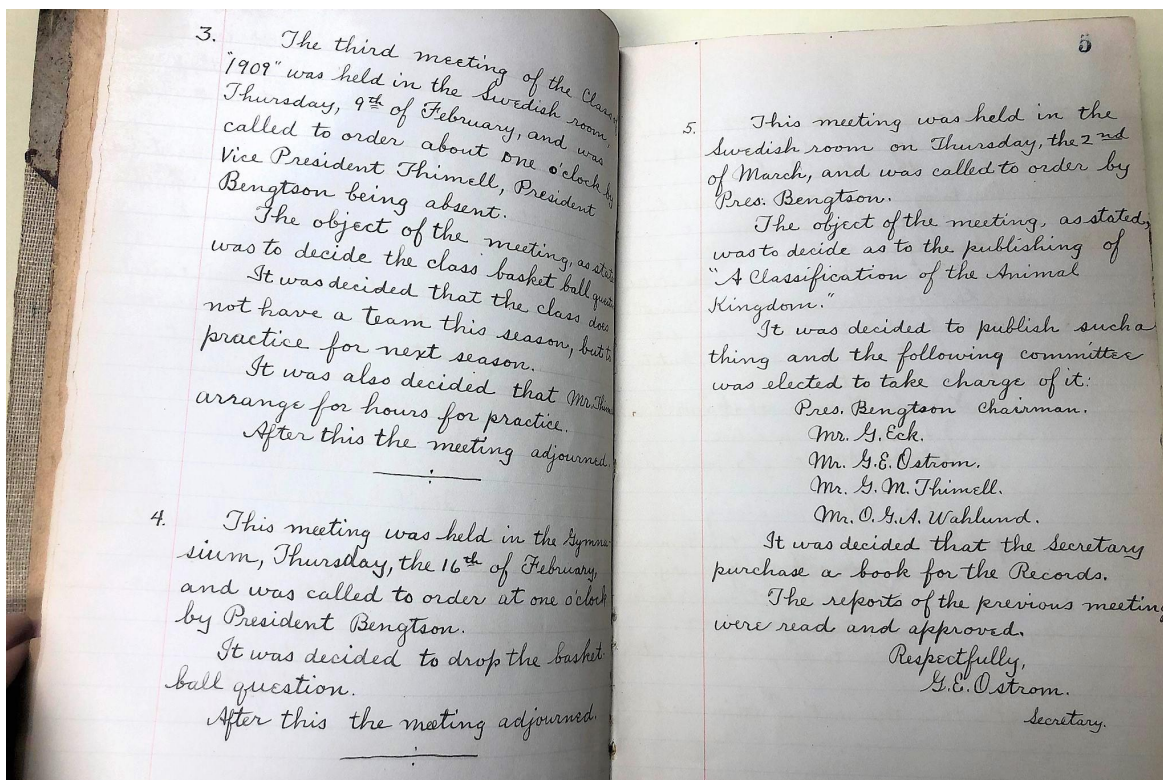 3. The third meeting of the Class
"1909" was held in the Swedish room,
Thursday, 9th of February, and was
called to order about one o'clock by
Vice President Thimell, President
Bengtson being absent.
The object of the meeting, as
was to decide the class basket ball
It was decided that the class does
not have a team this season, but to
practice for next season.
It was also decided that Mr.
arrange for hours for practice.
After this the meeting adjourned.
4. This meeting was held in the Gymna-
sium, Thursday, the 16th of February,
and was called to order at one o'clock
by President Bengtson.
It was decided to drop the basket-
ball question.
After this the meeting adjourned.
5
5. This meeting was held in the
Swedish room on Thursday, the 2nd
of March, and was called to order by
Pres. Bengtson.
The object of the meeting, as stated,
was to decide as to the publishing of
"A Classification of the Animal
Kingdom."
It was decided to publish such a
thing and the following committee
was elected to take charge of it:
Pres. Bengtson Chairman.
Mr. G. Eck.
Mr. G. E. Ostrom.
Mr. G. M. Thimell.
Mr. O. G. A. Wahlund.
It was decided that the Secretary
purchase a book for the Records.
The reports of the previous meeting
were read and approved.
Respectfully,
G. E. Ostrom.
Secretary.